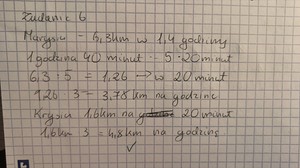 Zadanie 6
Marysia - 6,3km w 1,4 godziny
1 godzina 40 minut - 5 · 20 minut
6,3 : 5 = 1,26 → w 20 minut
1,26 · 3 = 3,78 km na godzinę
Krysia 1,6km na 20 minut
1,6km · 3 = 4,8km na godzinę
✓